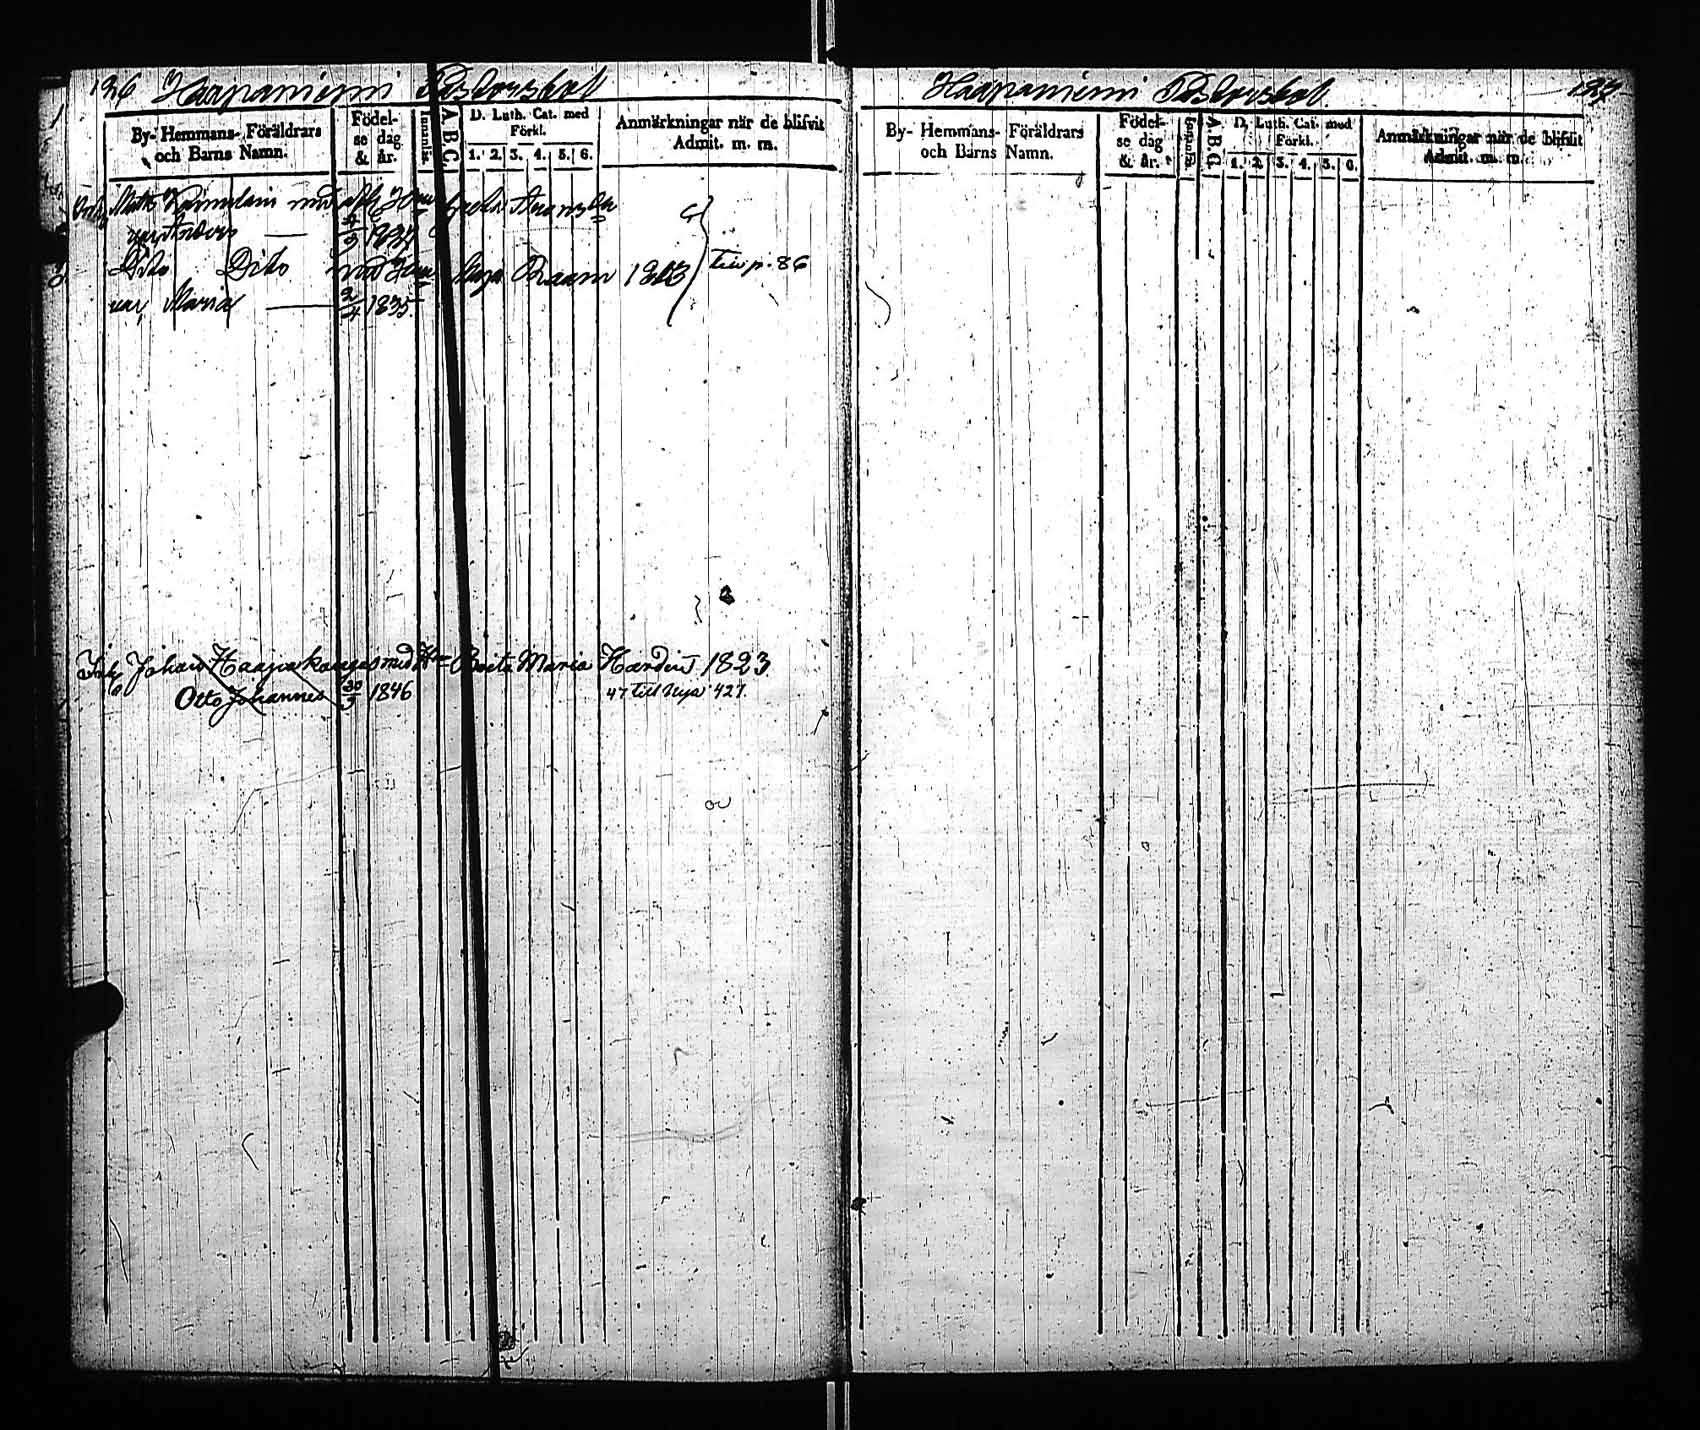 126 Haapaniemi Pastorsbol
By- Hemmans- Föräldrars
och Barns Namn.
Födel-
se dag
& år.
Innanläs.
A.B.C.
D. Luth. Cat. med
Förkl.
1. 2. 3. 4. 5. 6.
Anmärkningar när de blifvit
Admit. m. m.
Matts med
Anders 4/9
Dito Dito med 1803 till p. 86
Maria 2/4 1835
Johan Haapakangas med H Brita Maria Hardin 1823
Otto Johannes 30/3 1846 47 till Nya 427
Haapaniemi Pastorsbol 127
By- Hemmans- Föräldrars
och Barns Namn.
Födel-
se dag
& år.
Innanläs.
A.B.C.
D. Luth. Cat. med
Förkl.
1. 2. 3. 4. 5. 6.
Anmärkningar när de blifvit
Admit. m. m.